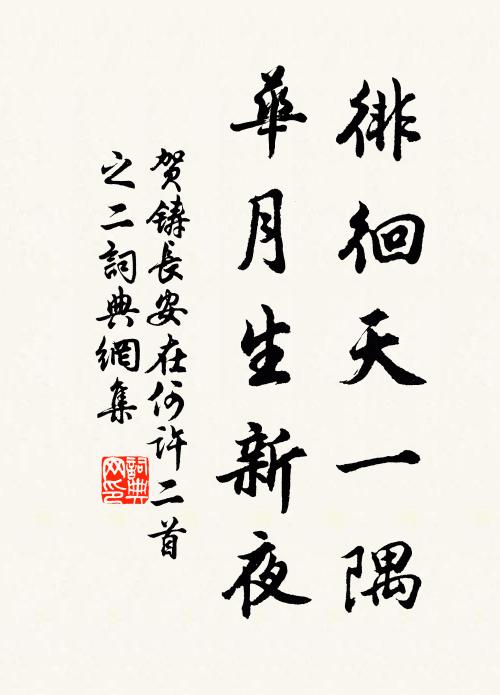 徘徊天一隅
華月生新夜
賀鑄長安在何許二首
之二詞典網集
詞典网印